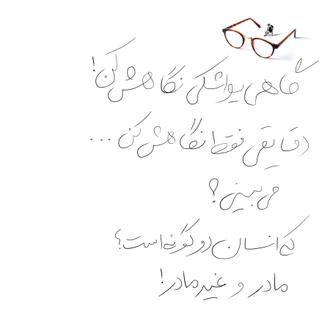 گاهی یواشکی نگاهش کن!
دقایقی فقط نگاهش کن ...
می بینی؟
که انسان دو گونه است؛
مادر و غیرمادر!